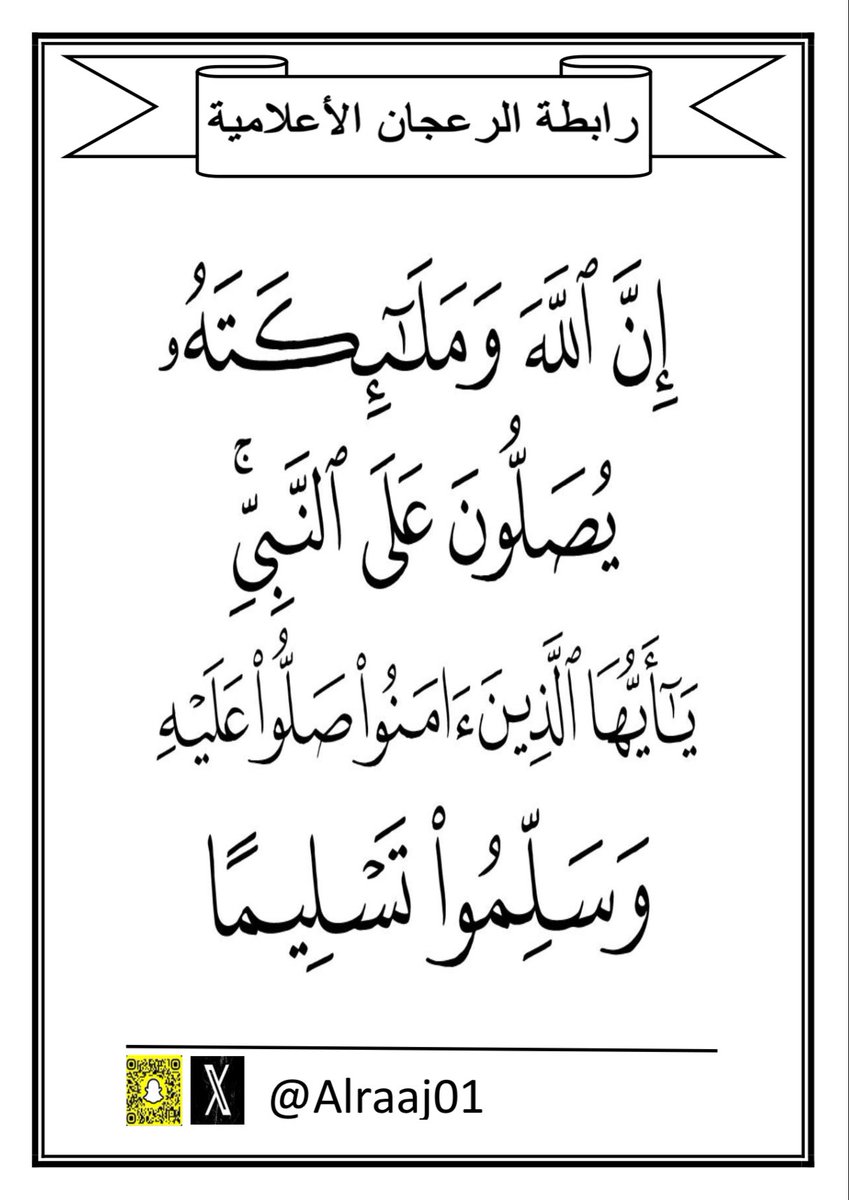 رابطة الرعجان الأعلامية
إِنَّ ٱللَّهَ وَمَلَـٰٓئِكَتَهُۥ
يُصَلُّونَ عَلَى ٱلنَّبِىِّ ۚ
يَـٰٓأَيُّهَا ٱلَّذِينَ ءَامَنُوا۟ صَلُّوا۟ عَلَيْهِ
وَسَلِّمُوا۟ تَسْلِيمًا
@Alraaj01